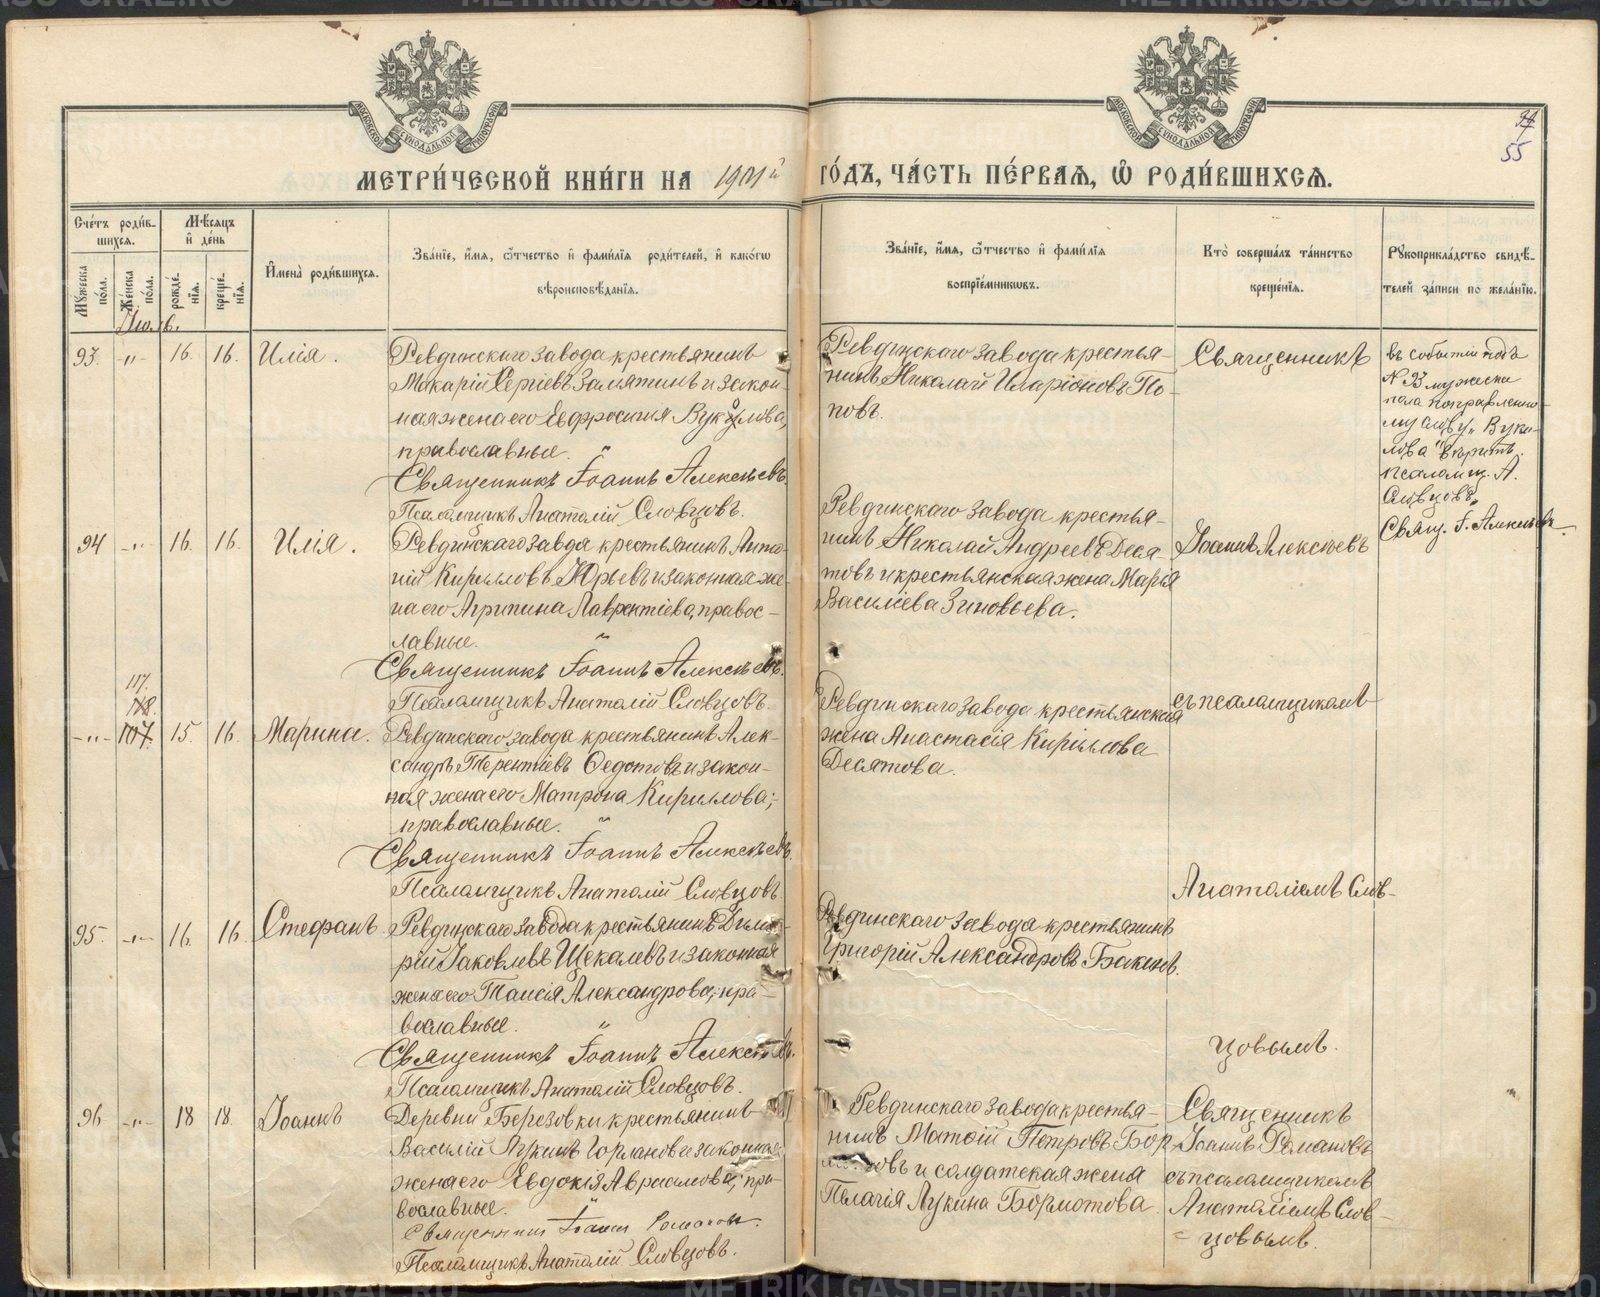 МЕТРИ́ЧЕСКОЙ КНИ́ГИ НА 1901й ГО́ДЪ, ЧА́СТЬ ПЕ́РВАѦ, Ѡ҆ РОДИ́ВШИХСѦ.
94
55
Сче́тъ роди́в-
шихсѧ.
Мѣ́сѧцъ
и҆ де́нь
Мꙋ́жеска по́ла.
Же́нска по́ла.
рожде́-
нїѧ.
креще́-
нїѧ.
И҆мена̀ роди́вшихсѧ.
Зва́нїе, и҆́мѧ, ѻ҆́тчество и҆ фами́лїѧ роди́телей, и҆ како́гѡ
вѣроисповѣ́данїѧ.
Зва́нїе, и҆́мѧ, ѻ҆́тчество и҆ фами́лїѧ
воспрїе́мникѡвъ.
Кто̀ соверша́лъ та́инство
креще́нїѧ.
Рꙋкоприкла́дство свидѣ́-
телей за́писи по жела́нїю.
Іюль.
93. -"- 16. 16. Илія.
Ревдинскаго завода крестьянинъ
Макарій Сергіевъ Замятинъ и закон-
ная жена его Евфросинія Вукулова,
православные.
Священникъ Іоаннъ Алексѣевъ.
Псаломщикъ Анатолій Словцовъ.
Ревдинскаго завода крестья-
нинъ Николай Иларіоновъ По-
повъ.
Священникъ
въ событіи подъ
№ 93 мужеска
пола поправленно-
му слову "Вуко-
лова" вѣрить.
псаломщ. А.
Словцовъ
Свящ. І. Алексѣевъ
94 -"- 16. 16. Илія.
Ревдинскаго завда крестьянинъ Анто-
ній Кирилловъ Юрьевъ и законная же-
на его Агрипина Лаврентіева, правос-
лавные.
Священникъ Іоаннъ Алексѣевъ.
Псаломщикъ Анатолій Словцовъ.
Ревдинскаго завода крестья-
нинъ Николай Андреевъ Деся
товъ и крестьянская жена Марія
Василіева Зиновьева.
Іоаннъ Алексѣевъ
117.
118.
-"- 107. 15. 16. Марина.
Ревдинскаго завода крестьянинъ Алек-
сандръ Терентіевъ Федотовъ и закон-
ная жена его Матрона Кириллова;
православные.
Священникъ Іоаннъ Алексѣевъ.
Псаломщикъ Анатолій Словцовъ
Ревдинскаго завода крестьянская
жена Анастасія Кириллова
Десятова.
съ псаломщикомъ
Анатоліемъ Слов-
95. -"- 16. 16. Стефанъ
Ревдинскаго завода крестьянинъ Димит-
рій Іаковлевъ Щекалевъ и законная
жена его Таисія Александрова, пра-
вославные.
Священникъ Іоаннъ Алексѣевъ.
Псаломщикъ Анатолій Словцовъ.
Ревдинскаго завода крестьянинъ
Григорій Александровъ Бакинъ.
цовымъ.
96 -"- 18 18. Іоаннъ
Деревни Березовки крестьянинъ
Василій Лукинъ Горлановъ и законная
жена его Евдокія Авраамова, пра-
вославные.
Священникъ Іоаннъ Романовъ.
Псаломщикъ Анатолій Словцовъ.
Ревдинскаго завода крестья-
нинъ Матѳій Петровъ Бор
овъ и солдатская жена
Пелагія Лукина Бормотова.
Священникъ
Іоаннъ Романовъ
съ псаломщикомъ
Анатоліемъ Слов-
цовымъ.